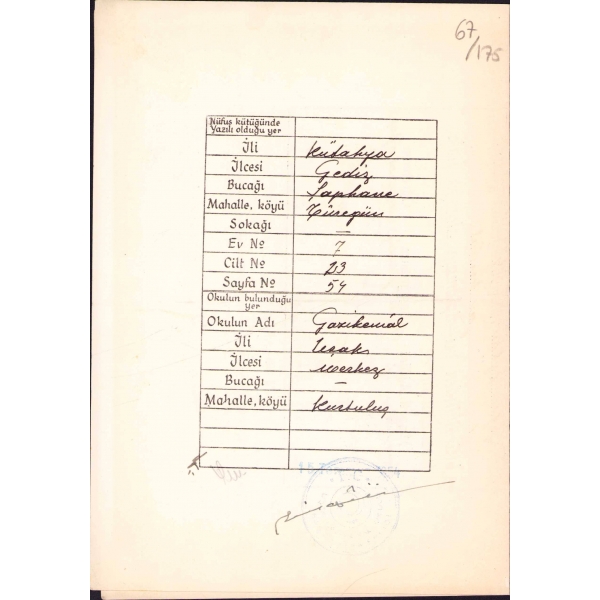 67
/175
Nüfus kütüğünde
Yazılı olduğu yer
İli Kütahya
İlçesi Gediz
Bucağı Şaphane
Mahalle, köyü
Sokağı —
Ev No 7
Cilt No 23
Sayfa No 54
Okulun bulunduğu
yer
Okulun Adı Gazikemâl
İli Uşak
İlçesi Merkez
Bucağı —
Mahalle, köyü Kurtuluş